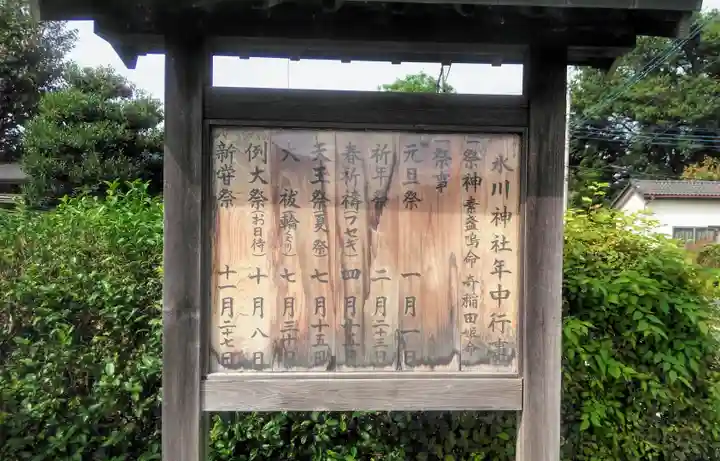 氷川神社年中行事
一祭神 素盞嗚命 奇稲田姫命
一祭事
元旦祭 一月一日
祈年祭 二月二十三日
春祈祷(フセギ) 四月十五日
天王祭(夏祭) 七月十五日
大祓輪(くぐり) 七月三十日
例大祭(お日待) 十月八日
新嘗祭 十一月二十七日